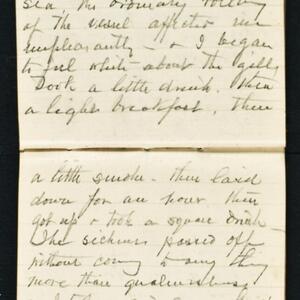 sea, the ordinary rolling
of the vessel affected me
unpleasantly - & I began
to feel white about the gills
Took a little drink, then
a light breakfast, then
a little smoke - then laid
down for an hour then
got up & took a square drink
The sickness passed off
without coming to any thing
more than qualmishness